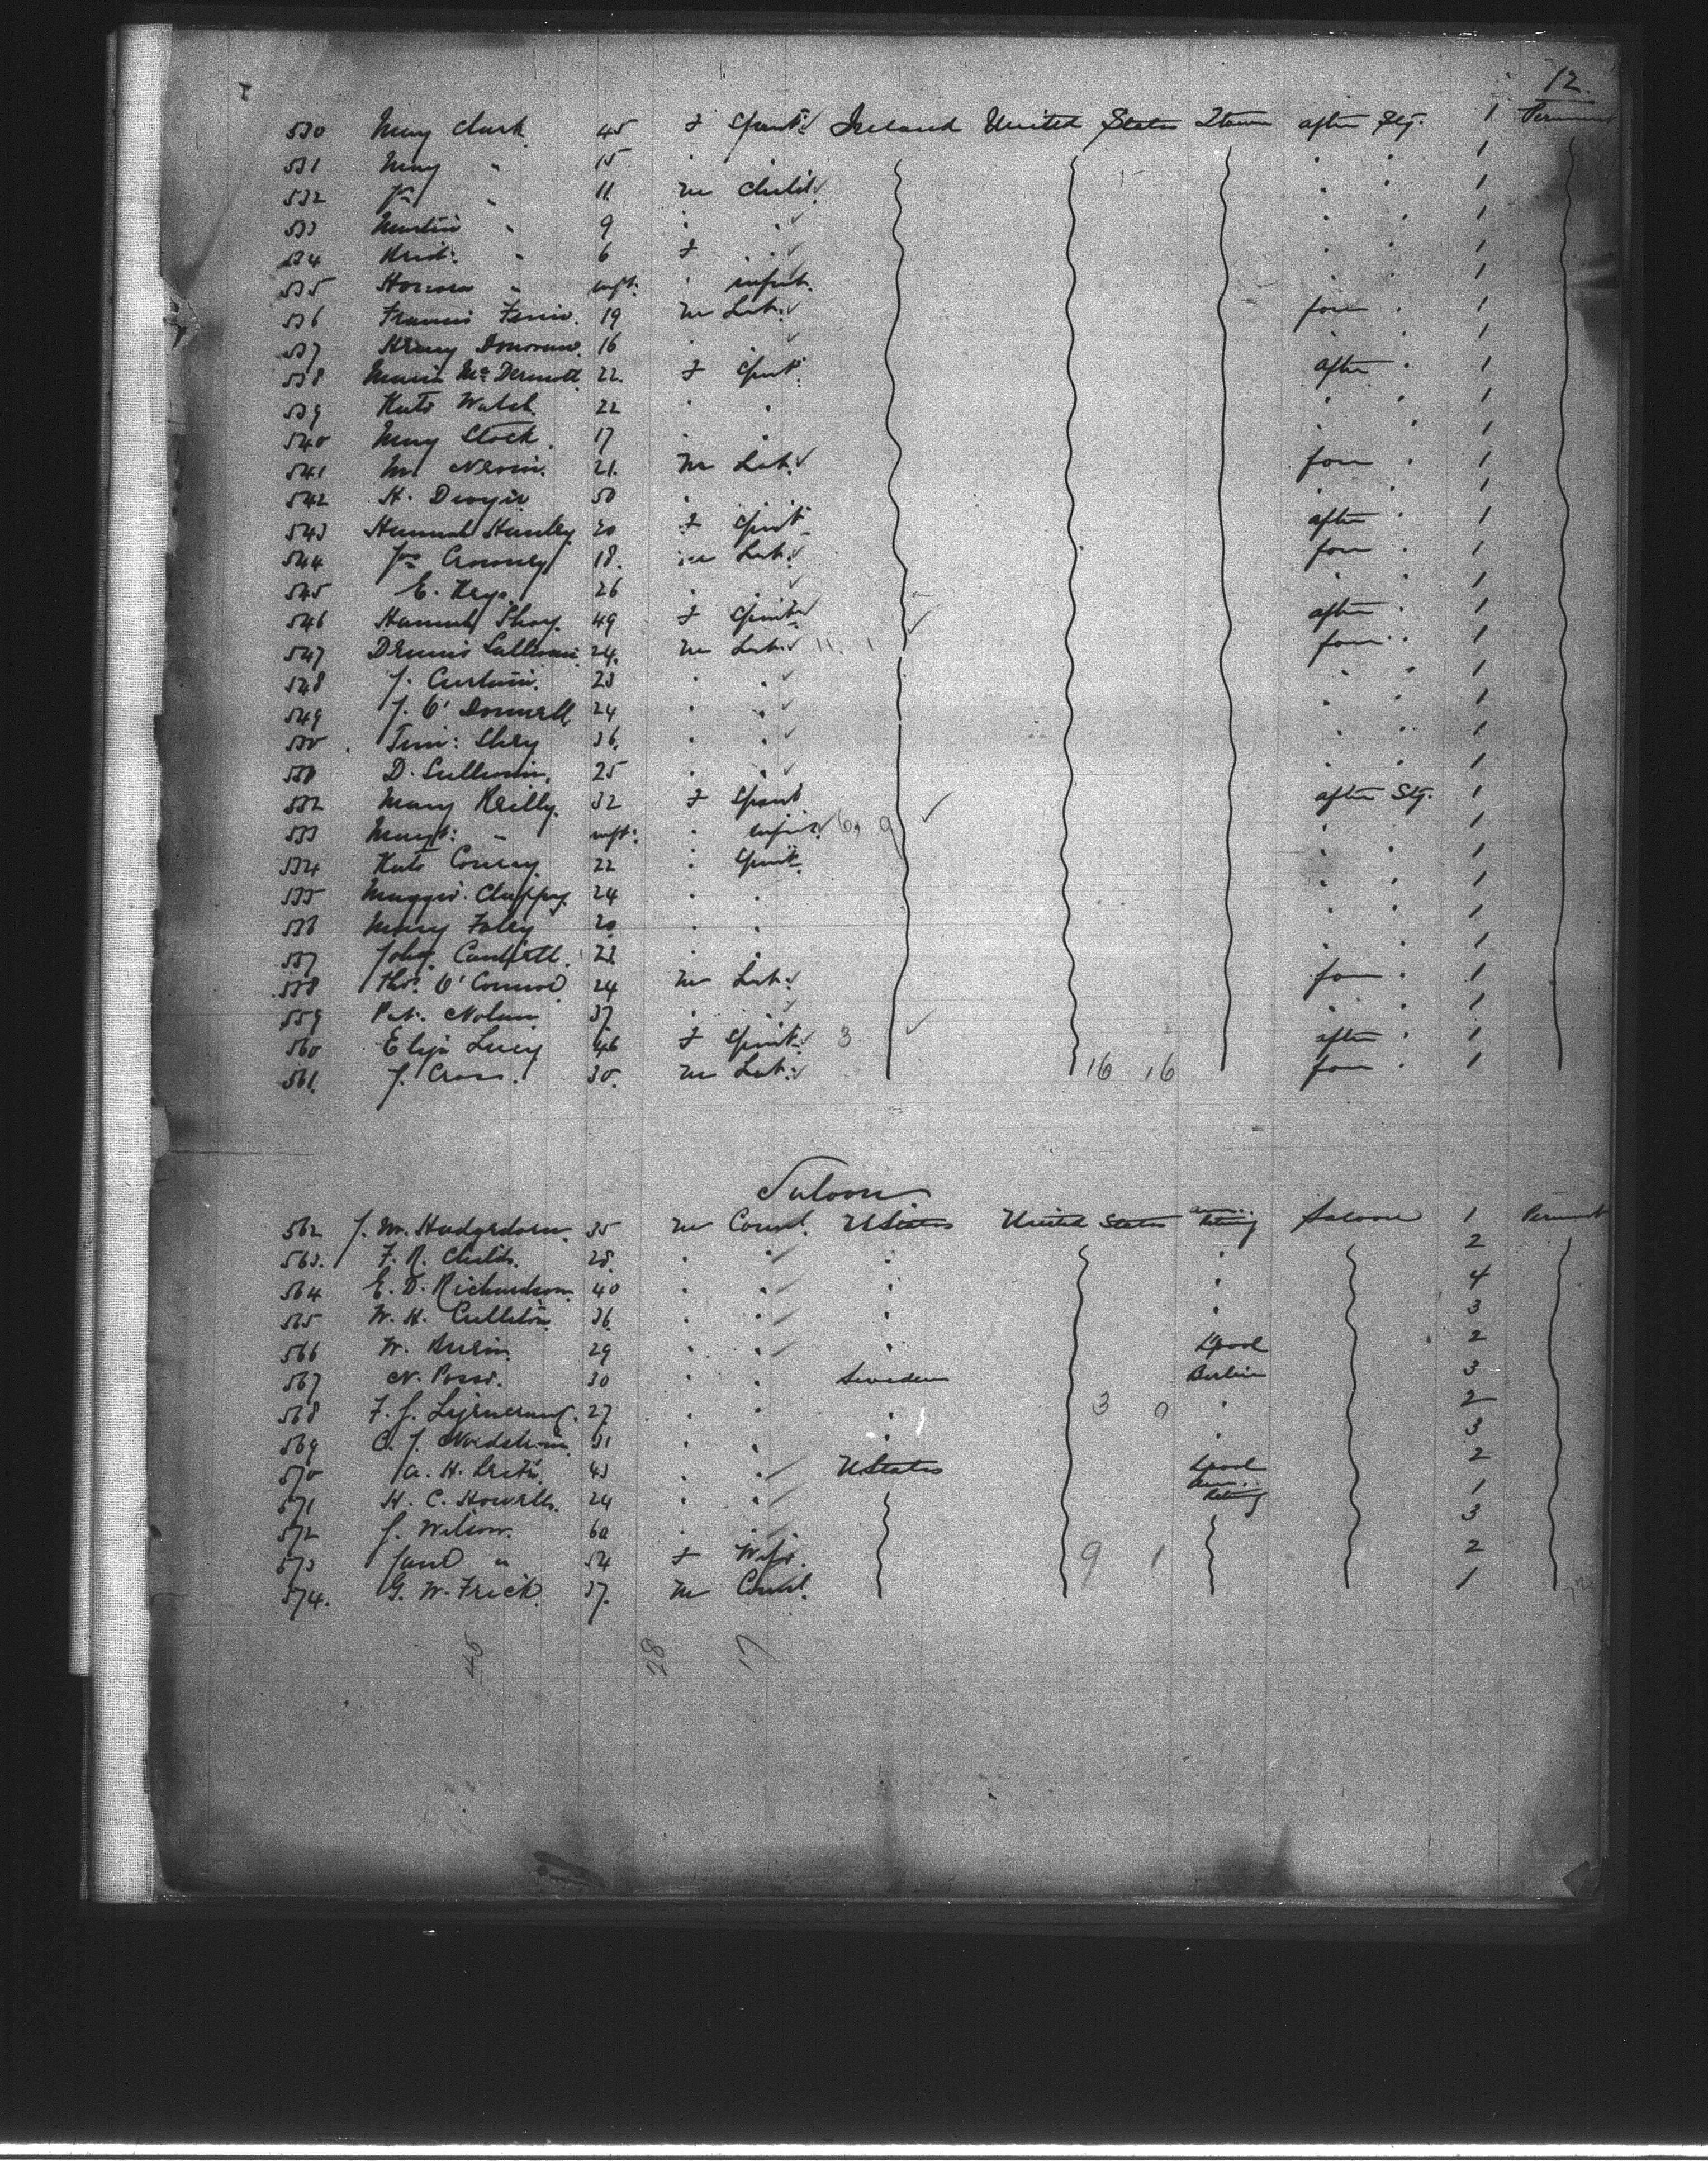 12.
530 Mary Clark 45 F Spinst. Ireland United States Qtown after Stg. 1 Permanent
531 Mary " 15 " " 1
532 Jas " 11 m Child " " 1
533 Martin " 9 " " " " 1
534 " 6 F " " " 1
535 Honora " inft. " infant. " " 1
536 Francis 19 m Lab. fore " 1
537 Henry Donovan 16 " " " " 1
538 Maria McDermott 22. F Spinst. after " 1
539 Kate Walsh 22 " " " " 1
540 Mary Stack 17 " " " " 1
541 M. Nevin. 21. m Lab. fore " 1
542 H. Dwyer 50 " " " 1
543 Hannah Hanley 20 F Spinst after " 1
544 Jas Crowney 18. m Lab. fore " 1
545 E. Keys. 26 " " " " 1
546 Hannah Shay. 49 F Spinst after " 1
547 Dennis Sullivan 24. m Lab. 11. 1 fore " 1
548 J. Curtain. 23 " " " " 1
549 J. O'Donnell 24 " " " " 1
550 Tim: Shay 36. " " " " 1
551 D. Sullivan. 25 " " " " 1
552 Mary Reilly. 32 F Spinst after Stg. 1
553 Margt: " inft: " infant 6, 9 " " 1
554 Kate Conway. 22 " Spinst. " " 1
555 Maggie Claffey. 24 " " " " 1
556 Mary Foley 20 " " " " 1
557 Cantrell. 23. " " " " 1
558 Thos. O'Connor 24 m Lab. fore " 1
559 Pat. Nolan 37. " " " " 1
560 Eliza Lucy 46 F Spinst. 3 after " 1
561. J. Cross. 30. m Lab. 16 16 fore " 1
Saloon
562 J. M. Hodgedorn. 35 m Consul. U States United States Saloon 1 Permanent
563. F. R. Childs. 28. " " " " 2
564 E. D. Richardson. 40 " " " " 4
565 W. H. Culliton. 36. " " " " 3
566 W. 29 " " " L'pool 2
567 N. Posse. 30 " " Sweden Berlin 3
568 F. J. 27. " " " 3 0 " 2
569 C. J. Nordstrom 31 " " " " 3
570 A. H. 43 " " U States L'pool 2
571 H. C. Howells. 24 " " 1
572 J. Wilson. 60 " " 3
573 Jane " 54 F Wife. 9 1 2
574. G. W. Frick. 37. m Consul. 1
45 28 17